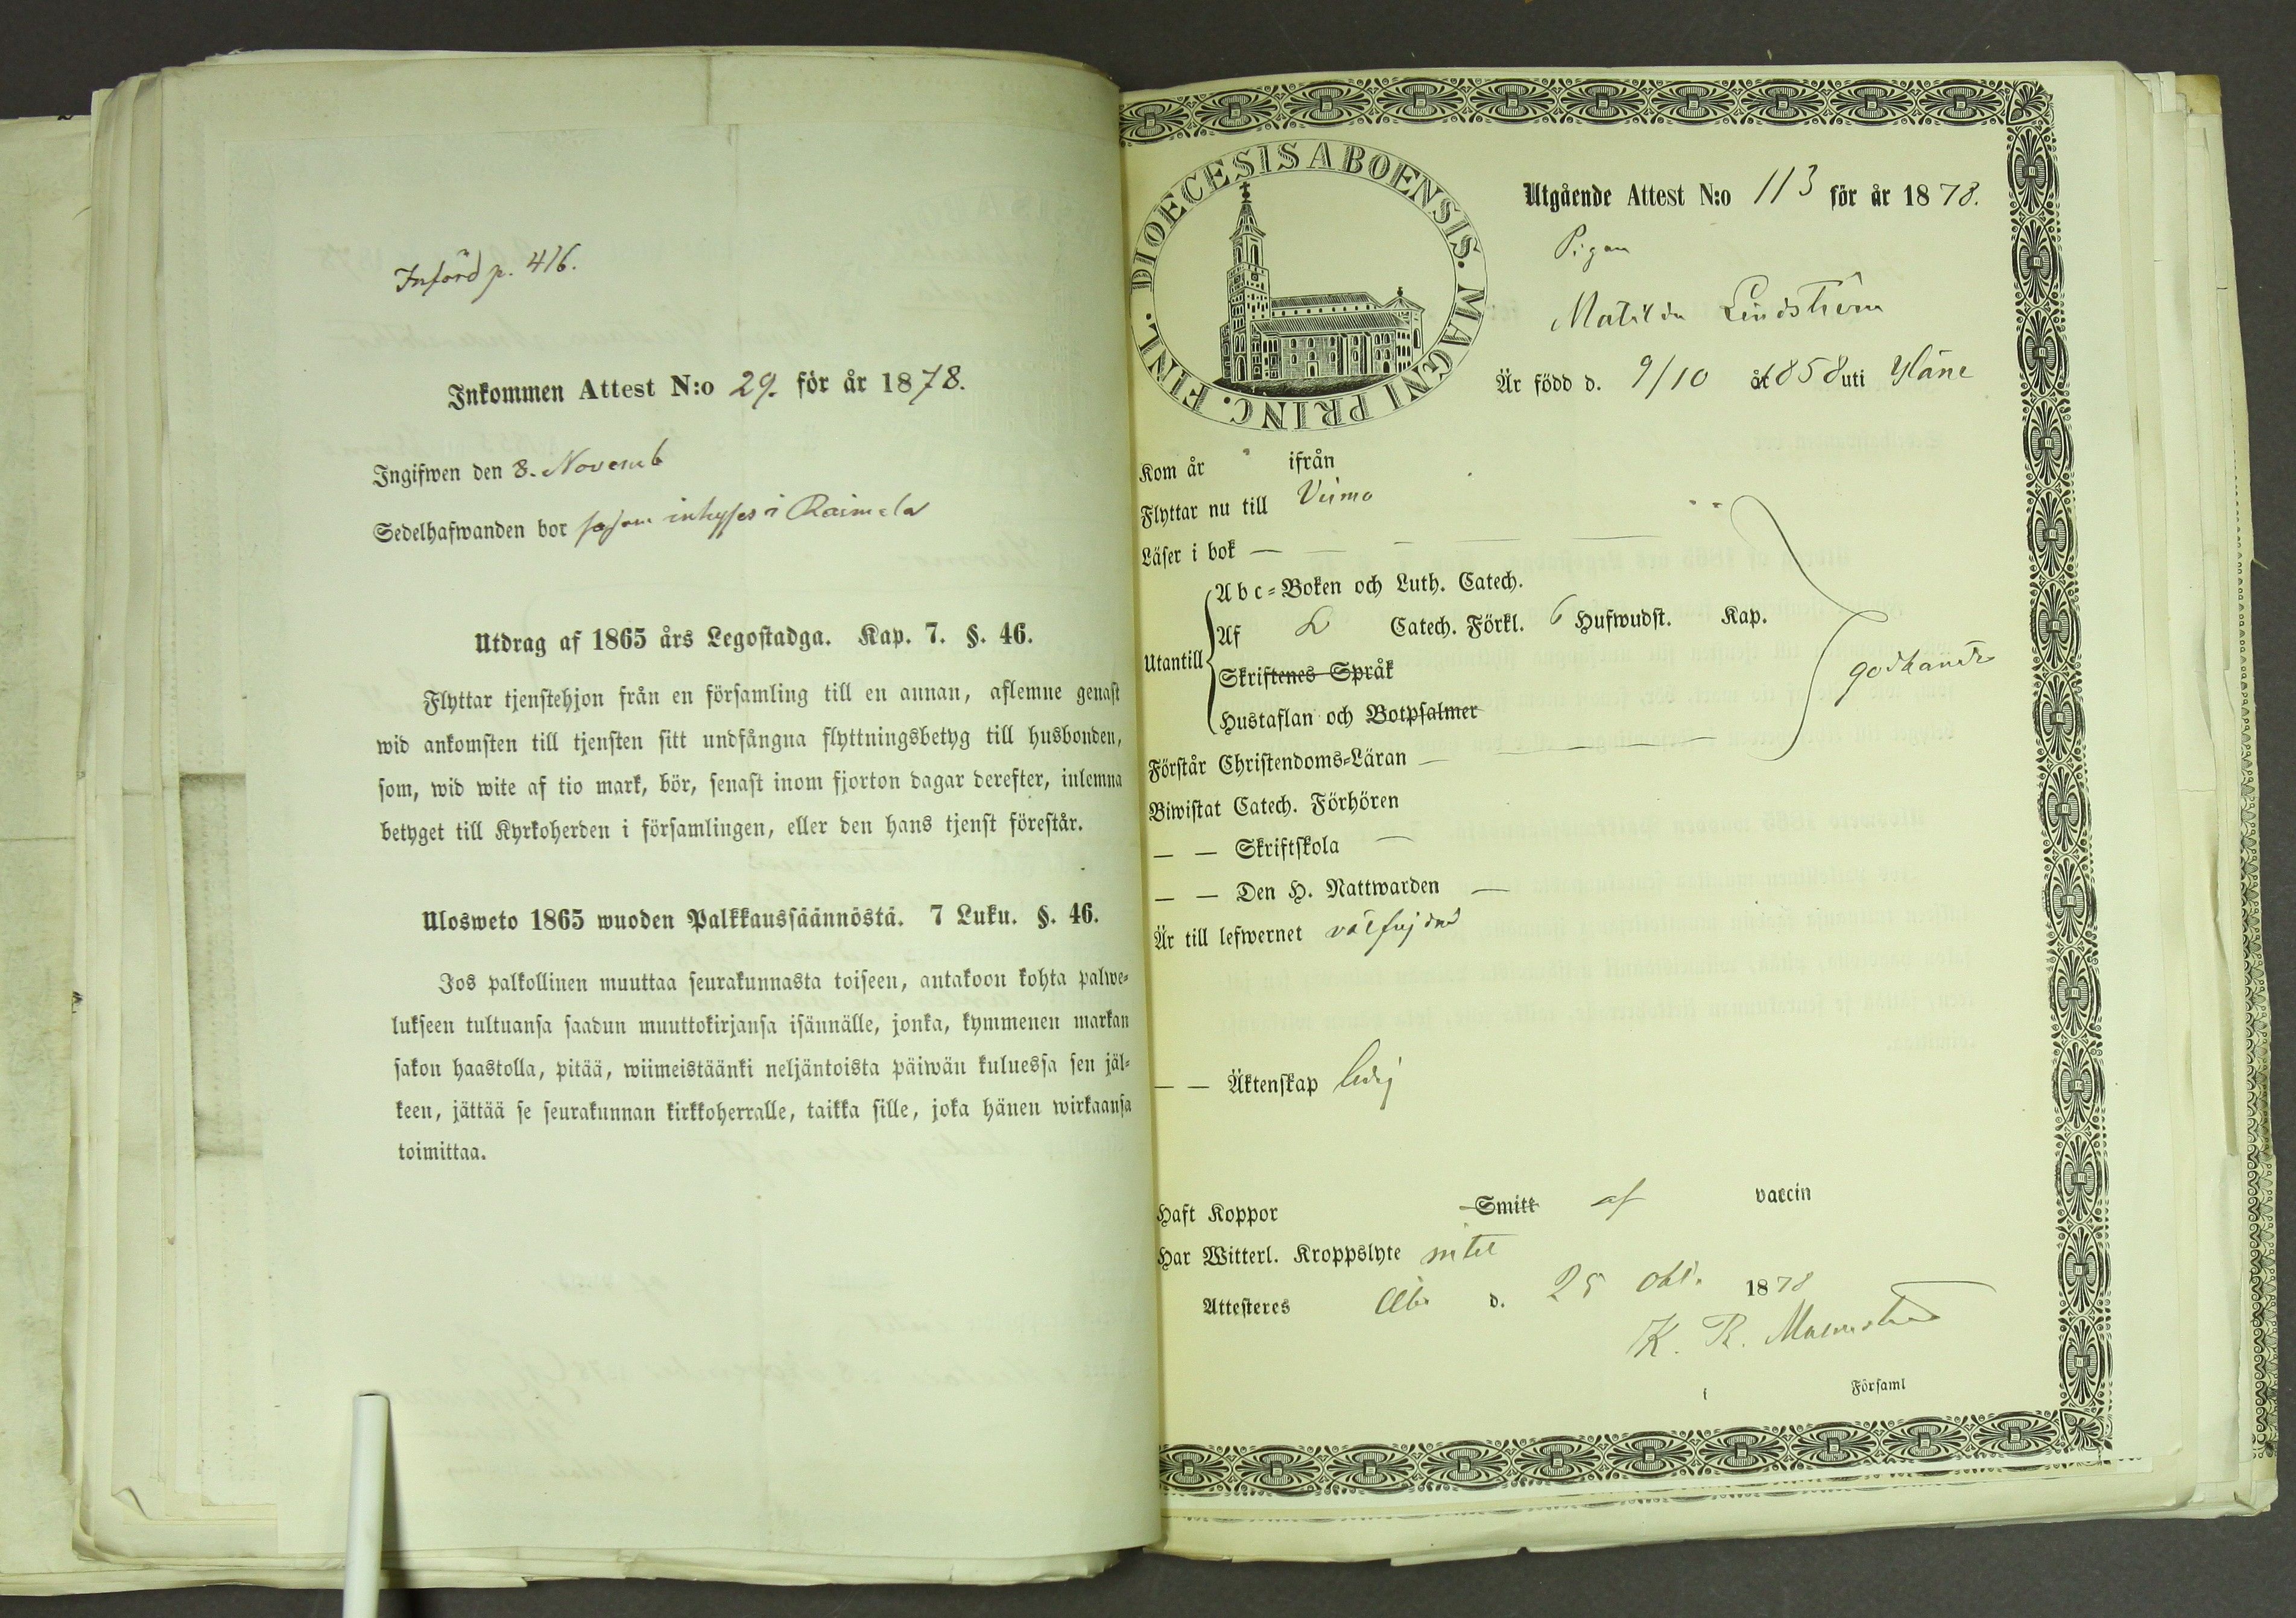 Införd p. 416.
Inkommen Attest N:o 29. för år 1878.
Ingifwen den 8. Novemb
Sedelhafwanden bor såsom inhyses i Raimela
Utdrag af 1865 års Legostadga. Kap. 7. §. 46.
Flyttar tjenstehjon från en församling till en annan, aflemne genast
wid ankomsten till tjensten sitt undfångna flyttningsbetyg till husbonden,
som, wid wite af tio mark, bör, senast inom fjorton dagar derefter, inlemna
betyget till Kyrkoherden i församlingen, eller den hans tjenst förestår.
Ulosweto 1865 wuoden Palkkaussäännöstä. 7 Luku. §. 46.
Jos palkollinen muuttaa seurakunnasta toiseen, antakoon kohta palwe-
lukseen tultuansa saadun muuttokirjansa isännälle, jonka, kymmenen markan
sakon haastolla, pitää, wiimeistäänki neljäntoista päiwän kuluessa sen jäl-
keen, jättää se seurakunnan kirkkoherralle, taikka sille, joka hänen wirkaansa
toimittaa.
DIOECESIS ABOENSIS. MAGNI PRINC. FINL.
Utgående Attest N:o 113 för år 1878.
Pigan
Matilda Lindström
Är född d. 9/10 år 1858 uti Yläne
Kom år ifrån
Flyttar nu till Vemo
Läser i bok — — — — —
Abc-Boken och Luth. Catech.
Utantill Af L Catech. Förkl. 6 Hufwudst. Kap.
Skriftenes Språk
godkändt
Hustaflan och Botpsalmer
Förstår Christendoms-Läran — — — —
Biwistat Catech. Förhören
— — Skriftskola —
— — Den H. Nattwarden —
Är till lefwernet välfrejdad
— — Äktenskap ledig
Haft Koppor Smitt af vaccin
Har Witterl. Kroppslyte intet
Attesteres Åbo d. 25 okt. 1878
K. R. Malmstedt
i Församl